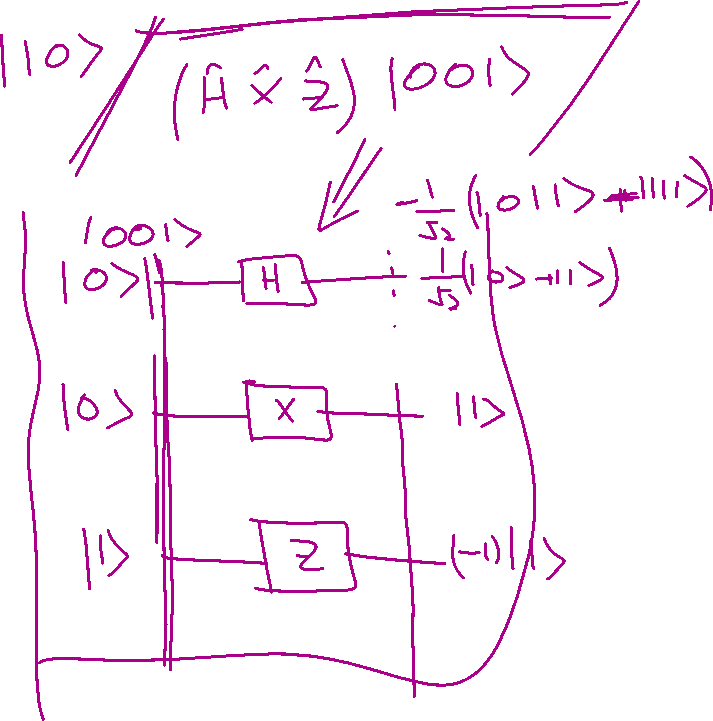 |10⟩
(Ĥ X̂ Ẑ) |001⟩
-1/√2 (|011⟩ + |111⟩)
|001⟩
|0⟩ H 1/√2 (|0⟩ + |1⟩)
|0⟩ X |1⟩
|1⟩ Z (-1)|1⟩